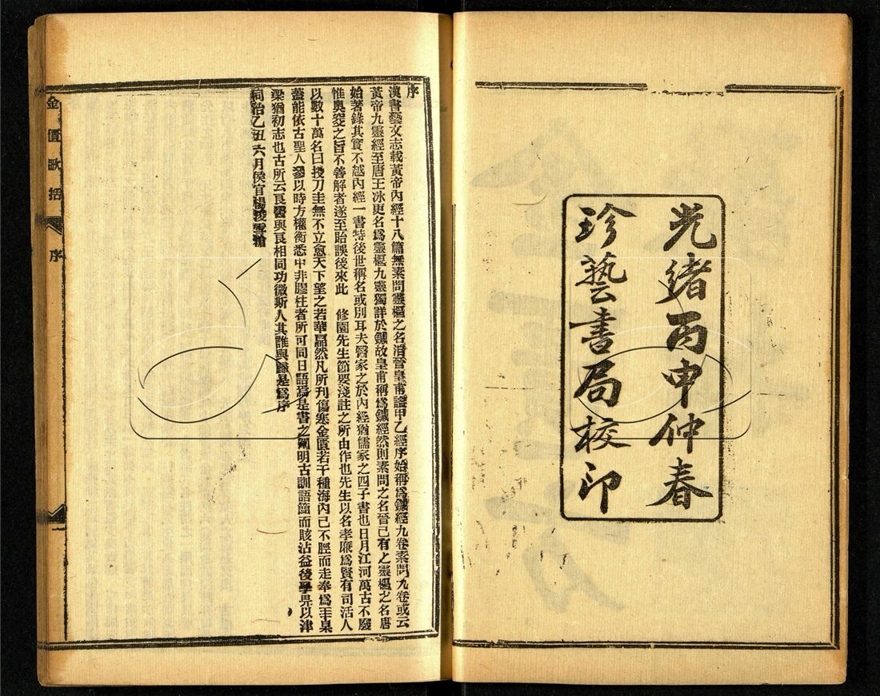 光緒丙申仲春
珍藝書局校印
序
漢書藝文志載黃帝內經十八篇無素問靈樞之名洎晉皇甫謐甲乙經序始稱爲鍼經九卷素問九卷或云
黃帝九靈經至唐王冰更名爲靈樞九靈獨詳於鍼故皇甫稱爲鍼經然則素問之名晉已有之靈樞之名唐
始著錄其實不越內經一書特後世稱名或別耳夫醫家之於內經猶儒家之四子書也日月江河萬古不廢
惟奧窔之旨不善解者遂至貽誤後來此　修園先生節要淺註之所由作也先生以名孝廉爲賢有司活人
以數十萬名曰授刀圭無不立愈天下望之若華扁然凡所刊傷寒金匱若干種海內已不脛而走奉爲圭臬
蓋能依古聖人
以時方權衡悉中非膠柱者所可同日語焉是書之
明古訓語簡而賅沾益後學畀以津
梁猶初志也古所云良醫與良相同功微斯人其誰與歸是爲序
同治乙丑六月侯官楊浚雪滄
金匱歌括
序
一